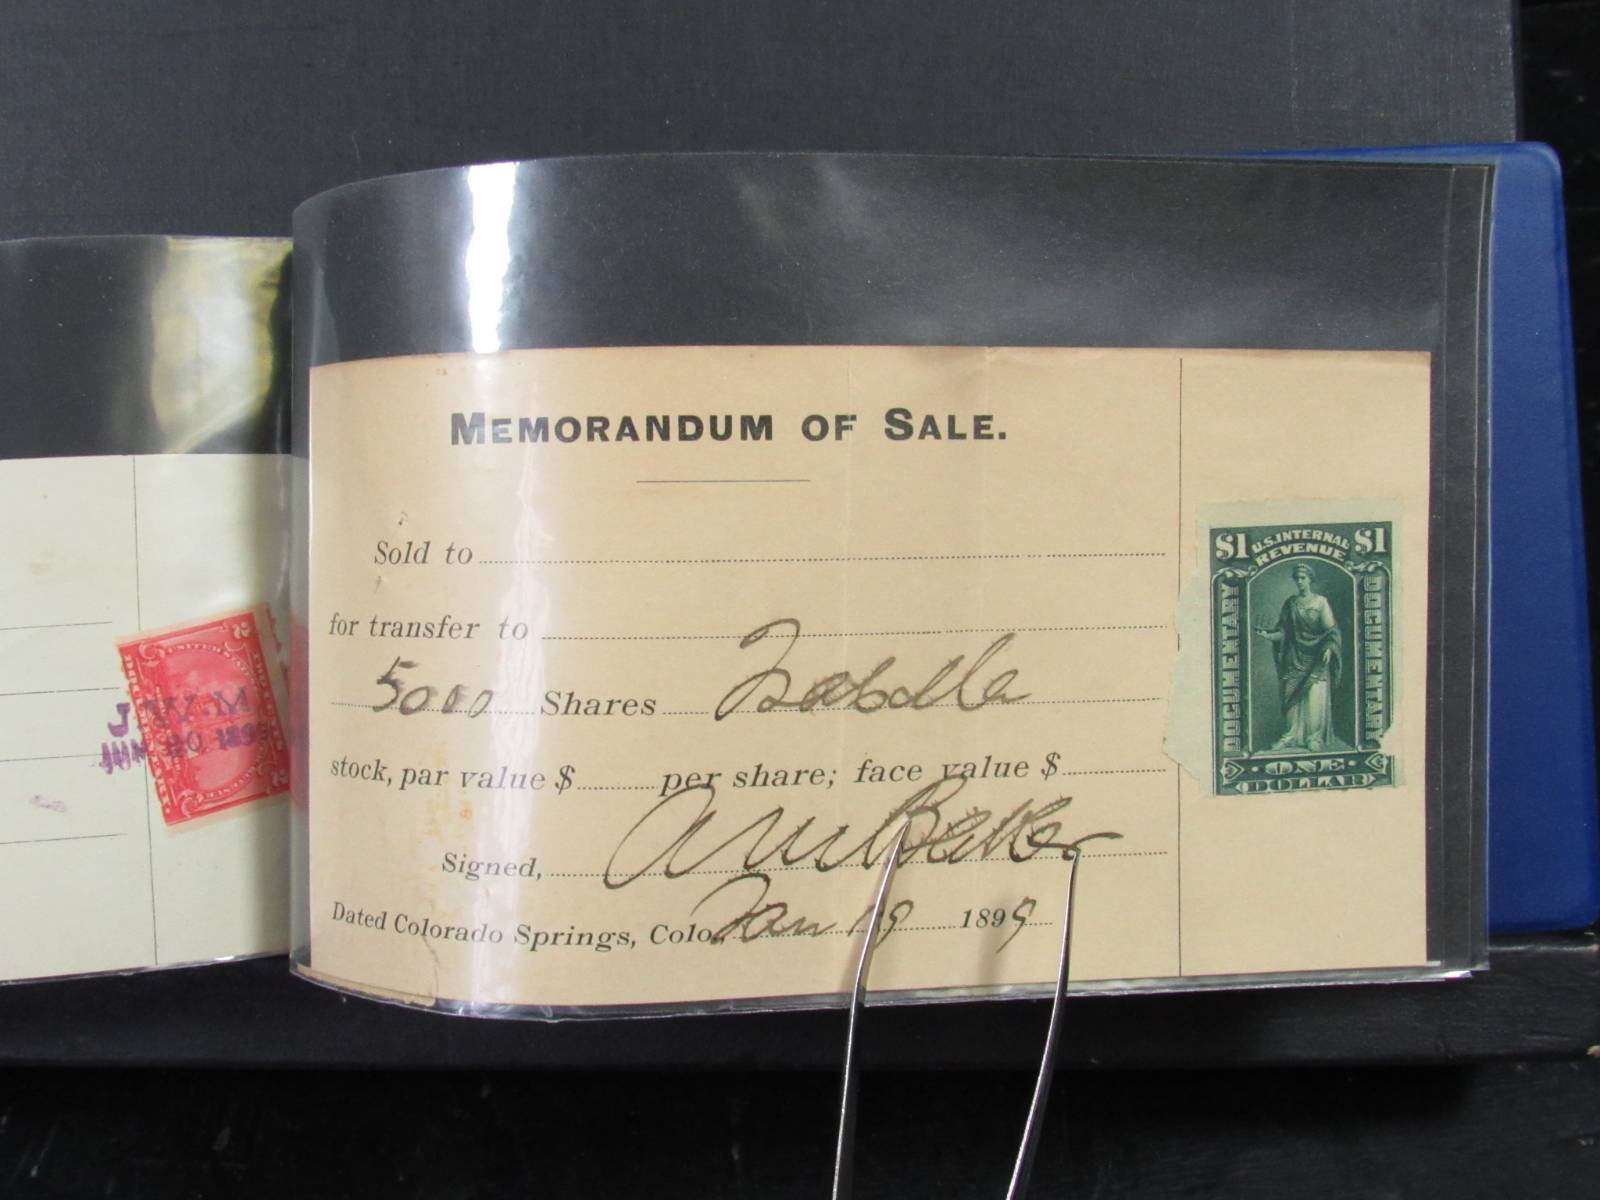 MEMORANDUM OF SALE.
Sold to
for transfer to
5000 Shares Isabella
stock, par value $ per share; face value $
Signed,
Dated Colorado Springs, Colo. Jan 19 1899
$1 U.S. INTERNAL REVENUE $1
DOCUMENTARY
DOCUMENTARY
ONE
DOLLAR
J.W.M
JUN 20 189